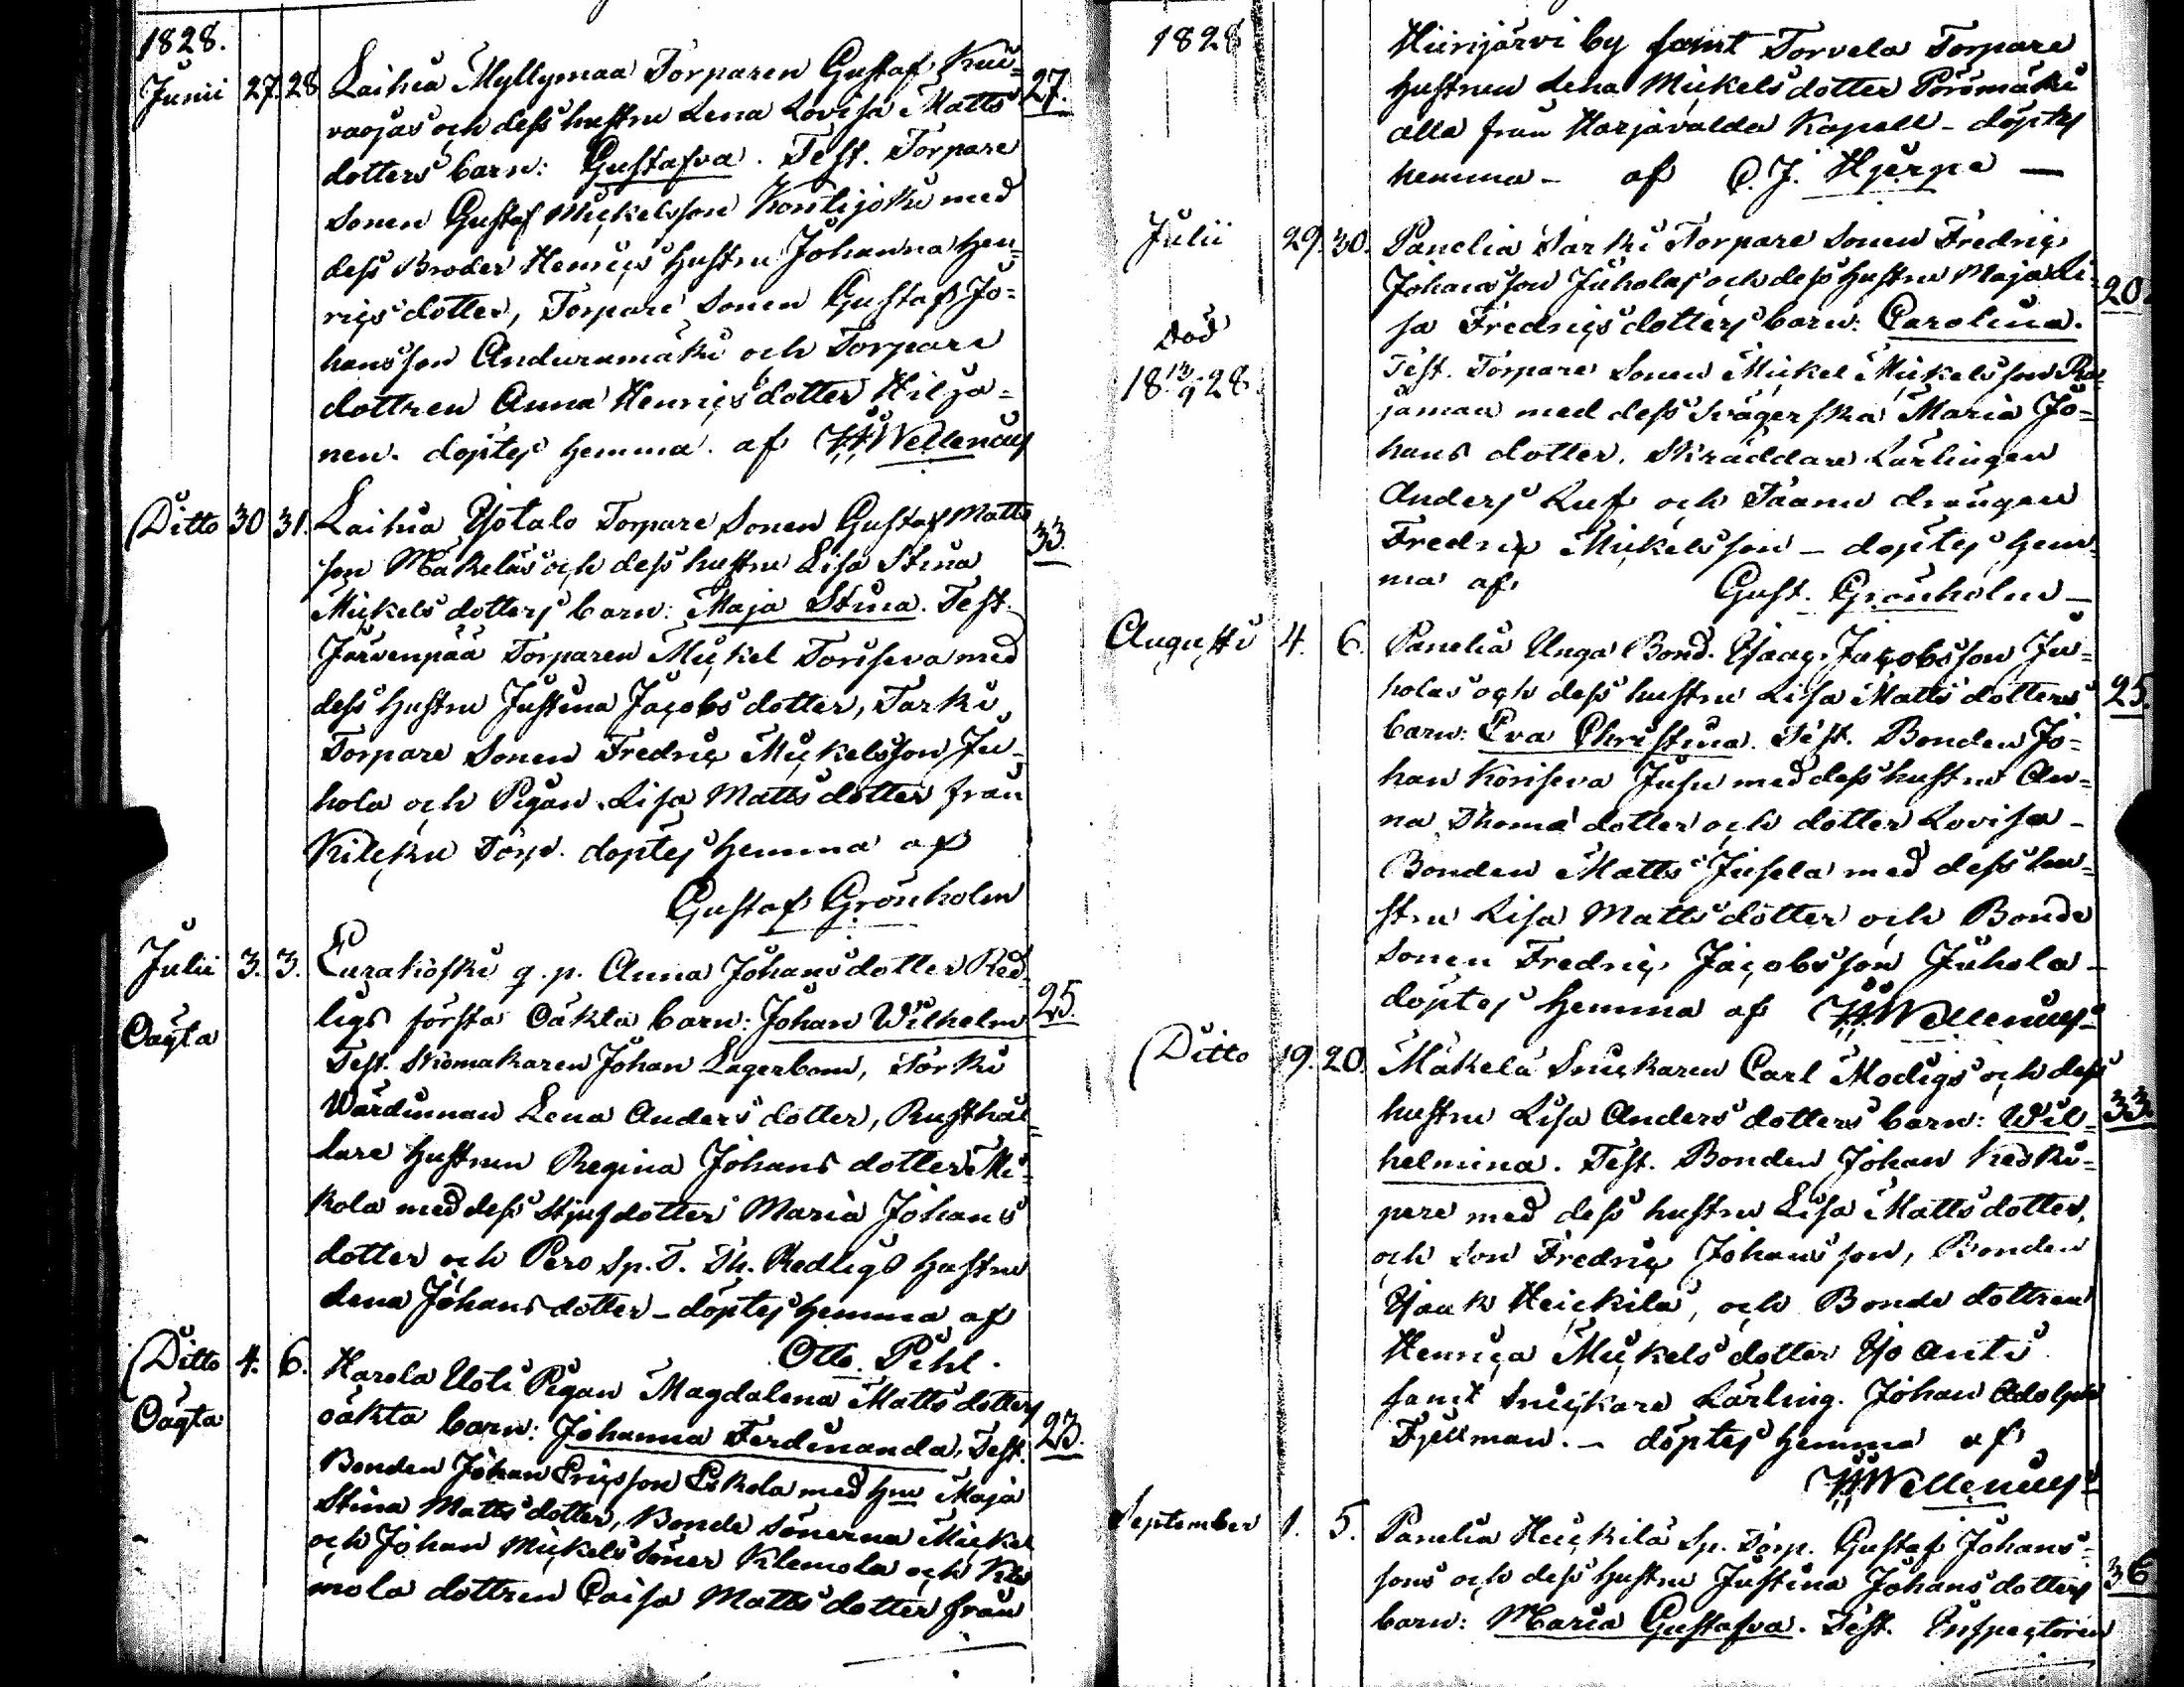 1828.
Junii 27. 28 Laihia Myllymaa Torparen Gustaf Kui= 27.
vaojas och dess hustru Lena Lovisa Matts
dotters barn: Gustafva. Test. Torpare
Sonen Gustaf Mickelsson Kontijoki med
dess Broder Henrics Hustru Johanna Hen=
rics dotter, Torpare Sonen Gustaf Jo=
hansson Anduramäki och Torpare
dottren Anna Henrics dotter Hilja=
nen. döptes hemma. af H. Wellenius
Ditto 30 31. Laihia Yjotalo Torpare Sonen Gustaf Matts 33.
son Mäkeläs och dess hustru Lisa Stina
Mickels dotters barn: Maja Stina. Test.
Järvenpää Torparen Mickel Toriseva med
dess Hustru Justina Jacobs dotter, Tarki
Torpare Sonen Fredric Mickelsson Ju=
hola och Pigan Lisa Matts dotter från
Kilcku Torp. döptes hemma af
Gustaf Grönholm
Julii 3. 3. Eurakoski q. p. Anna Johans dotter Red
Oägta ligs första Oäkta barn: Johan Wilhelm 25.
Test. Skomakaren Johan Lagerbom, Torki
Wärdinnan Lena Anders dotter, Rusthål=
lare Hustrun Regina Johans dotter Mi=
kola med dess Stjufdotter Maria Johans
dotter och Pers Sp. T. Th. Redligs Hustru
Lena Johans dotter – döptes hemma af
Otto Pihl.
Ditto 4. 6. Harola Uoti Pigan Magdalena Matts dotters
Oägta oäkta barn: Johanna Ferdinanda. Test. 23.
Bonden Johan Ericsson Eskola med Hru Maja
Stina Matts dotter, Bonde Sönerna Mickel
och Johan Mickels Söner Klemola och Kle
mola dottren Caisa Matts dotter från
1828
Hiirijärvi by samt Torvela Torpare
Hustrun Lena Mickels dotter Pörömäki
alla från Harjavalda Kapell – döptes
hemma – af C. J. Hjerpe —
Julii 29. 30. Panelia Tarki Torpare Sonen Fredric
Johansson Juholas och dess Hustru Maja Li= 20.
sa Fredrics dotters barn: Carolina.
Död
18 28. Test. Torpare Sonen Mickel Mickelsson
jaman med dess Svägerska Maria Jo=
hans dotter. Skräddare Lärlingen
Anders Luf och Taanu drängen
Fredric Mickelsson – döptes hem=
ma af Gust. Grönholm –
Augusti 4. 6. Panelia Unga Bond. Isaac Jacobsson Ju=
holas och dess hustru Lisa Matts dotters 25.
barn: Eva Christina. Test. Bonden Jo=
han Koriseva Jusu med dess hustru An=
na Thoma dotter och dotter Lovisa –
Bonden Matts Jusela med dess hu=
stru Lisa Matts dotter och Bonde
Sonen Fredric Jacobsson Juhola –
döptes hemma af H. Wellenius
Ditto 19. 20. Mäkelä Snickaren Carl Modigs och dess
hustru Lisa Anders dotters barn: Wil= 33.
helmina. Test. Bonden Johan Keski=
pere med dess hustru Lisa Matts dotter,
och Son Fredric Johansson, Bonden
Isaak Heickilä, och Bonde dottren
Henrica Mickels dotter Yjo anti
samt Snickare Lärling. Johan Adolph
Fjellman. – döptes hemma af
H. Wellenius
September 1. 5. Panelia Heickilä Sp. Torp. Gustaf Johans=
sons och dess Hustru Justina Johans dotters 36
barn: Maria Gustafva. Test. Inspectoren